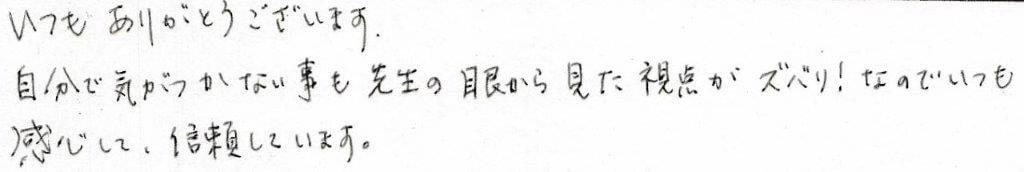 いつも ありがとうございます.
自分で気がつかない事も 先生の眼から見た視点が ズバリ!なのでいつも
感心して、信頼しています。